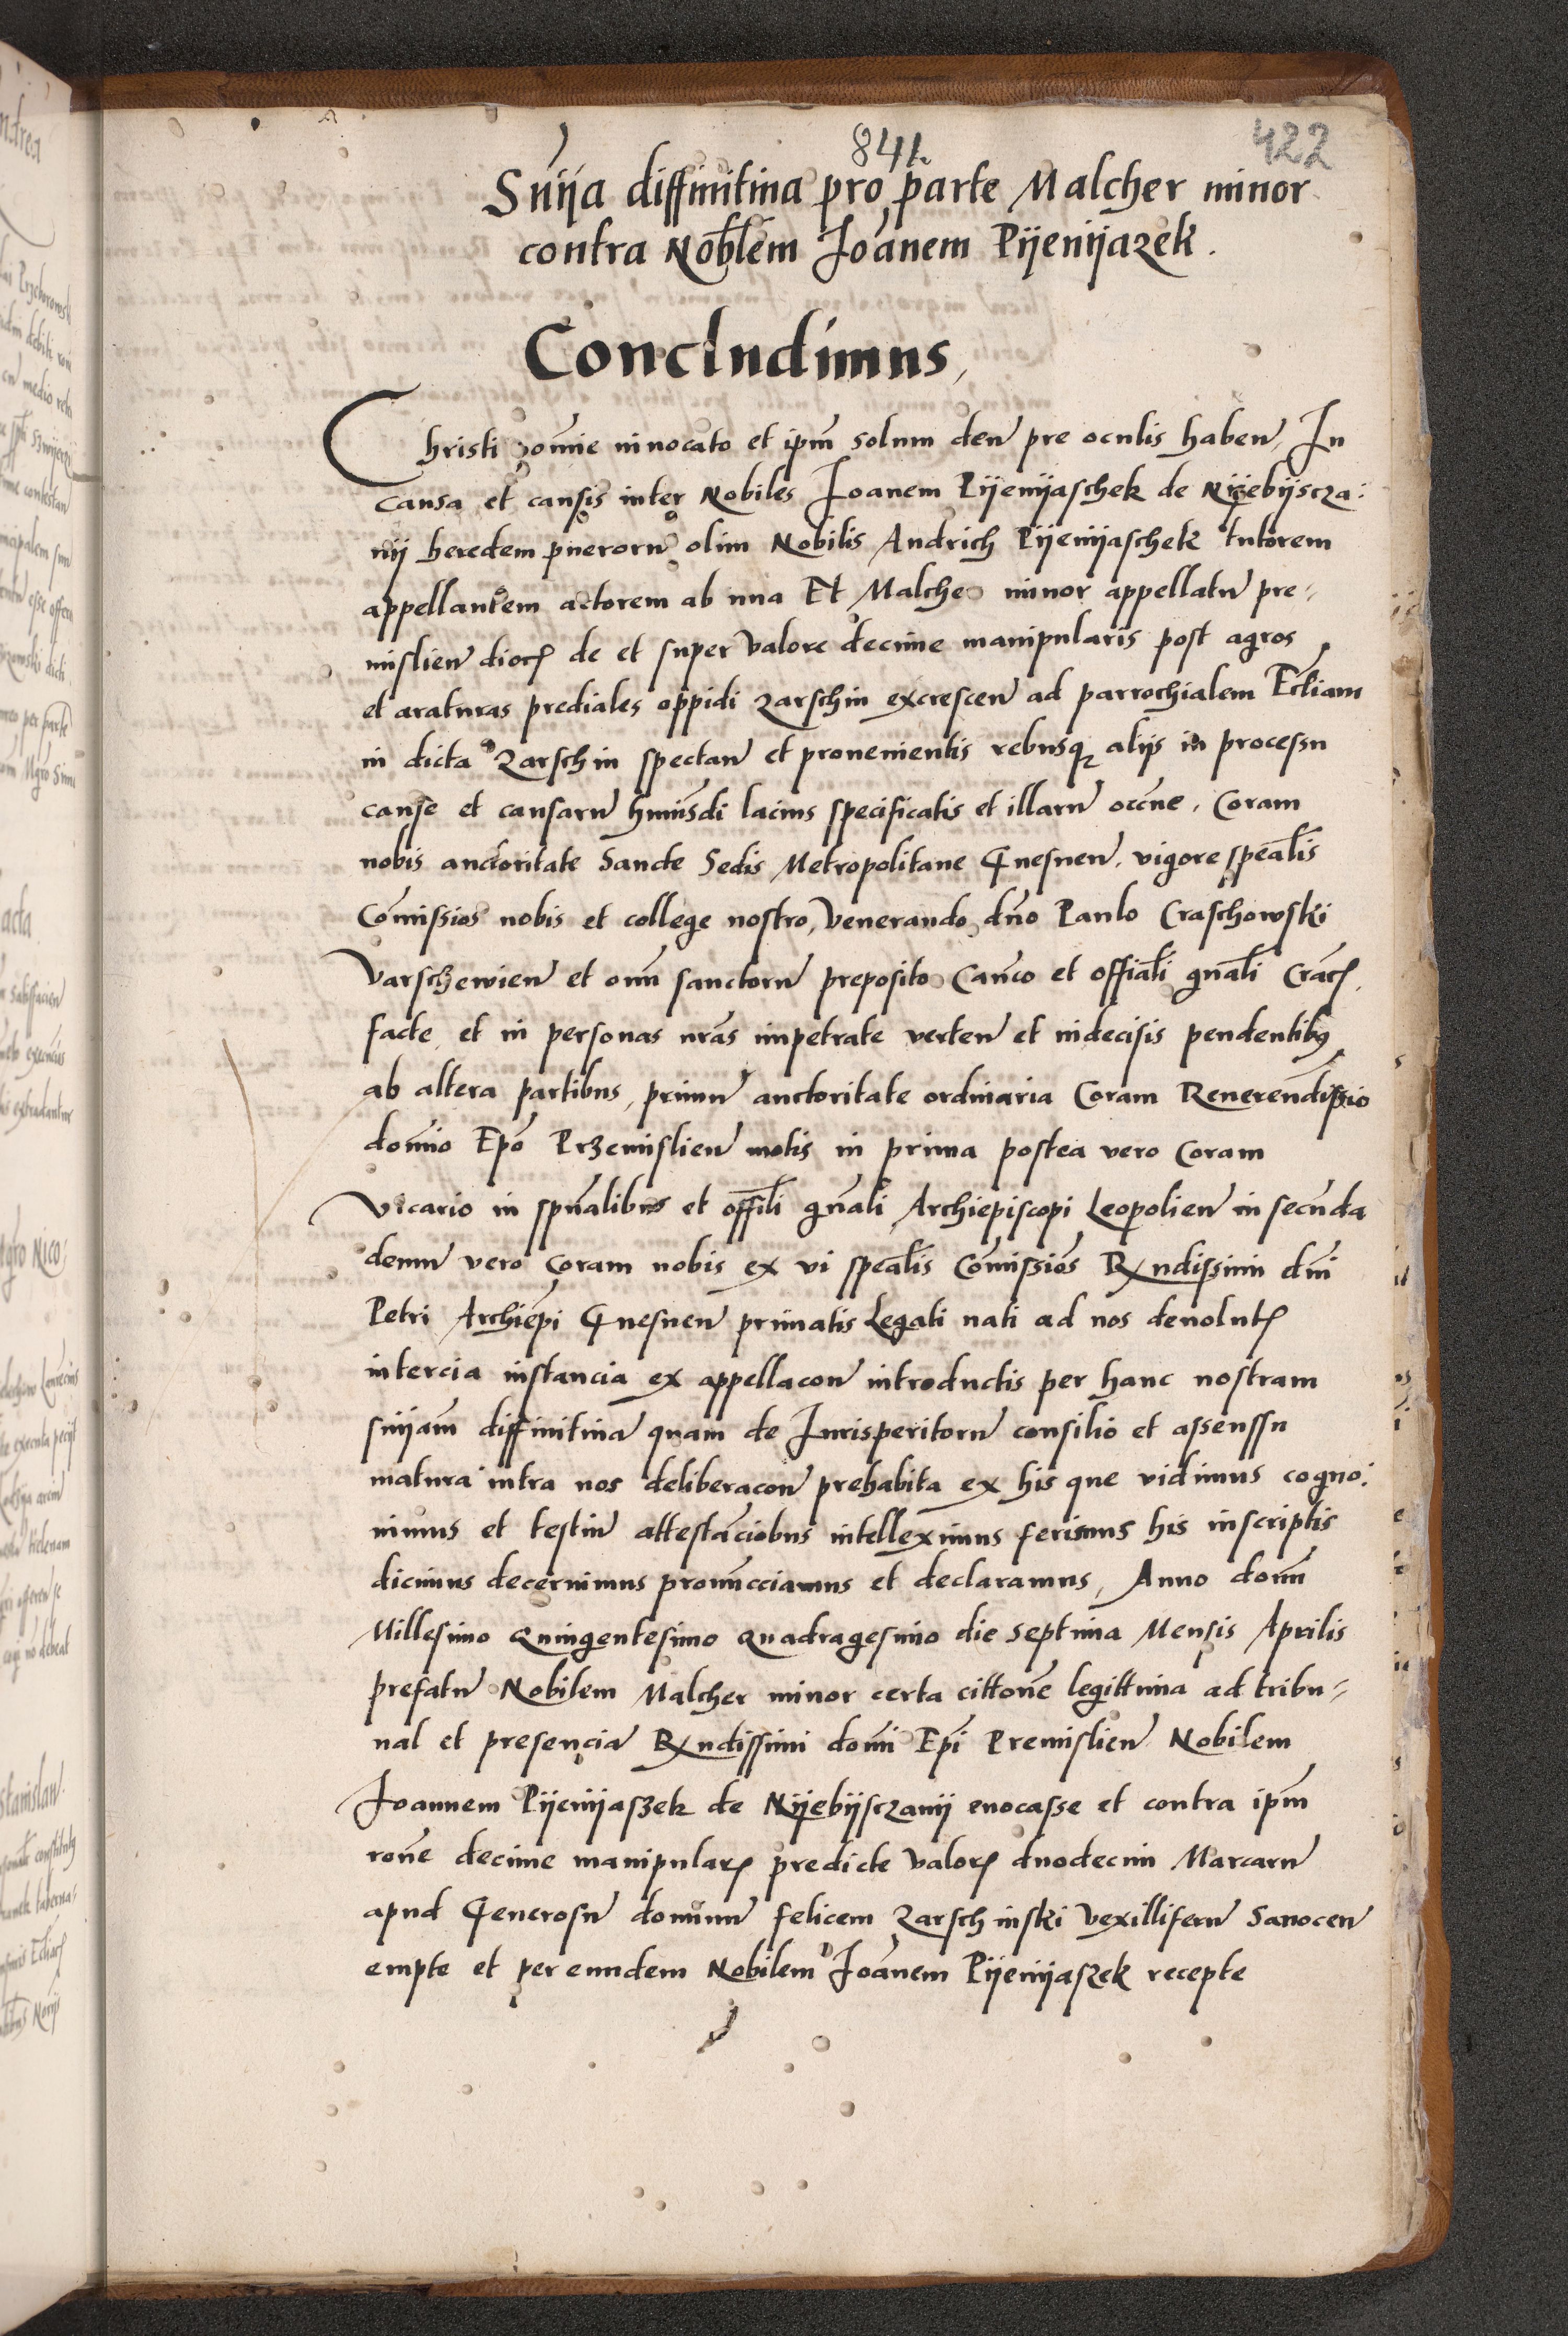 841.
422
Snīja diffinitiua pro parte Malcher minor
contra Nobłem Joānem Pÿenÿazek.
Concludimus,
Christi nomīe inuocato et ipm̄ solum deū pre oculis habeñ, In
causa et causis inter Nobiles Joanem Pÿenÿaschek de Nÿebÿscza:
nÿ heredem puerorū olim Nobilis Andrich Pÿenÿaschek tutorem
appellantem actorem ab una Et Malcher minor appellatū pre=
mislieñ dioc̄ de et super valore decime manipularis post agros
et araturas prediales oppidi Zarschin excresceñ ad parrochialem Ecc̄liam
in dicta Zarschin spectañ et prouenientis rebusq3 alijs in processu
cause et causarū hmōi lacius specificatis et illarū occ̄ne, Coram
nobis auctoritate Sancte Sedis Metropolitane Gnesneñ, vigore speālis
Com̄issiōs nobis et college nostro, Venerando dn̄o Paulo Craschowski
Varschewieñ et om̄ sanctorū preposito Canc̄o et offiāli gn̄ali Crac̄
facte et in personas nr̄as impetrate verteñ et indecisis pendentib9
ab altera partibus, primū auctoritate ordinaria Coram Reuerendissīo
dom̄io Ep̄o Przemislieñ motis in prima postea vero Coram
Vicario in spūalibus et offīli gn̄ali Archiepiscopi Leopolieñ in secūda
demū vero coram nobis ex vi speālis Com̄issiōs Rx̄ndissimi dn̄i
Petri Archiēpi Gnesneñ primatis Legati nati ad nos deuolut̄
in tercia instancia ex appellacoñ introductis per hanc nostram
sn̄iam diffinitiuā quam de Jurisperitorū consilio et assenssu
matura intra nos deliberacoñ prehabita ex his que vidimus cogno:
uimus et testiū attestac̄iobus intelleximus ferimus his inscriptis
dicimus decernimus pronūcciamus et declaramus, Anno domī
Millesimo Quingentesimo Quadragesimo die Septima Mensis Aprilis
prefatū Nobilem Malcher minor certa cittonē legittima ad tribu=
nal et presenciā Rx̄ndissimi domī Ep̄i Premislieñ Nobilem
Joannem Pÿenÿaszek de Nÿebÿsczanÿ euocasse et contra ipm̄
ronē decime manipular̄ predicte valor̄ duodecim Marcarū
apud Generosū dominū felicem Zarschinski Vexilliferū Sanoceñ
empte et per eundem Nobilem Joānem Pÿenÿaszek recepte